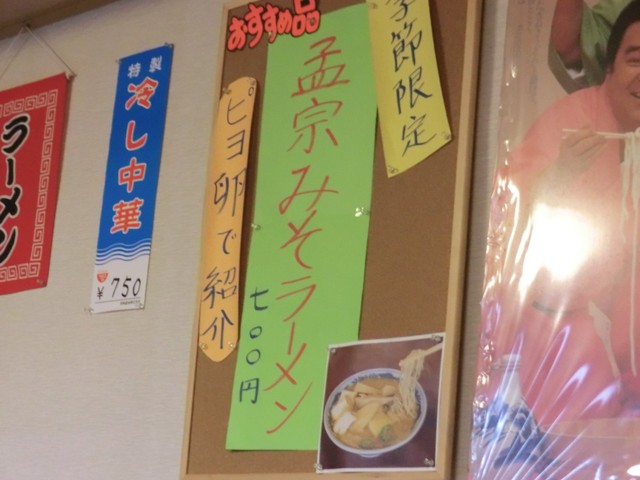 ラーメン
特製
冷し中華
¥750
おすすめ品
季節限定
孟宗みそラーメン
七〇〇円
ピヨ卵で紹介